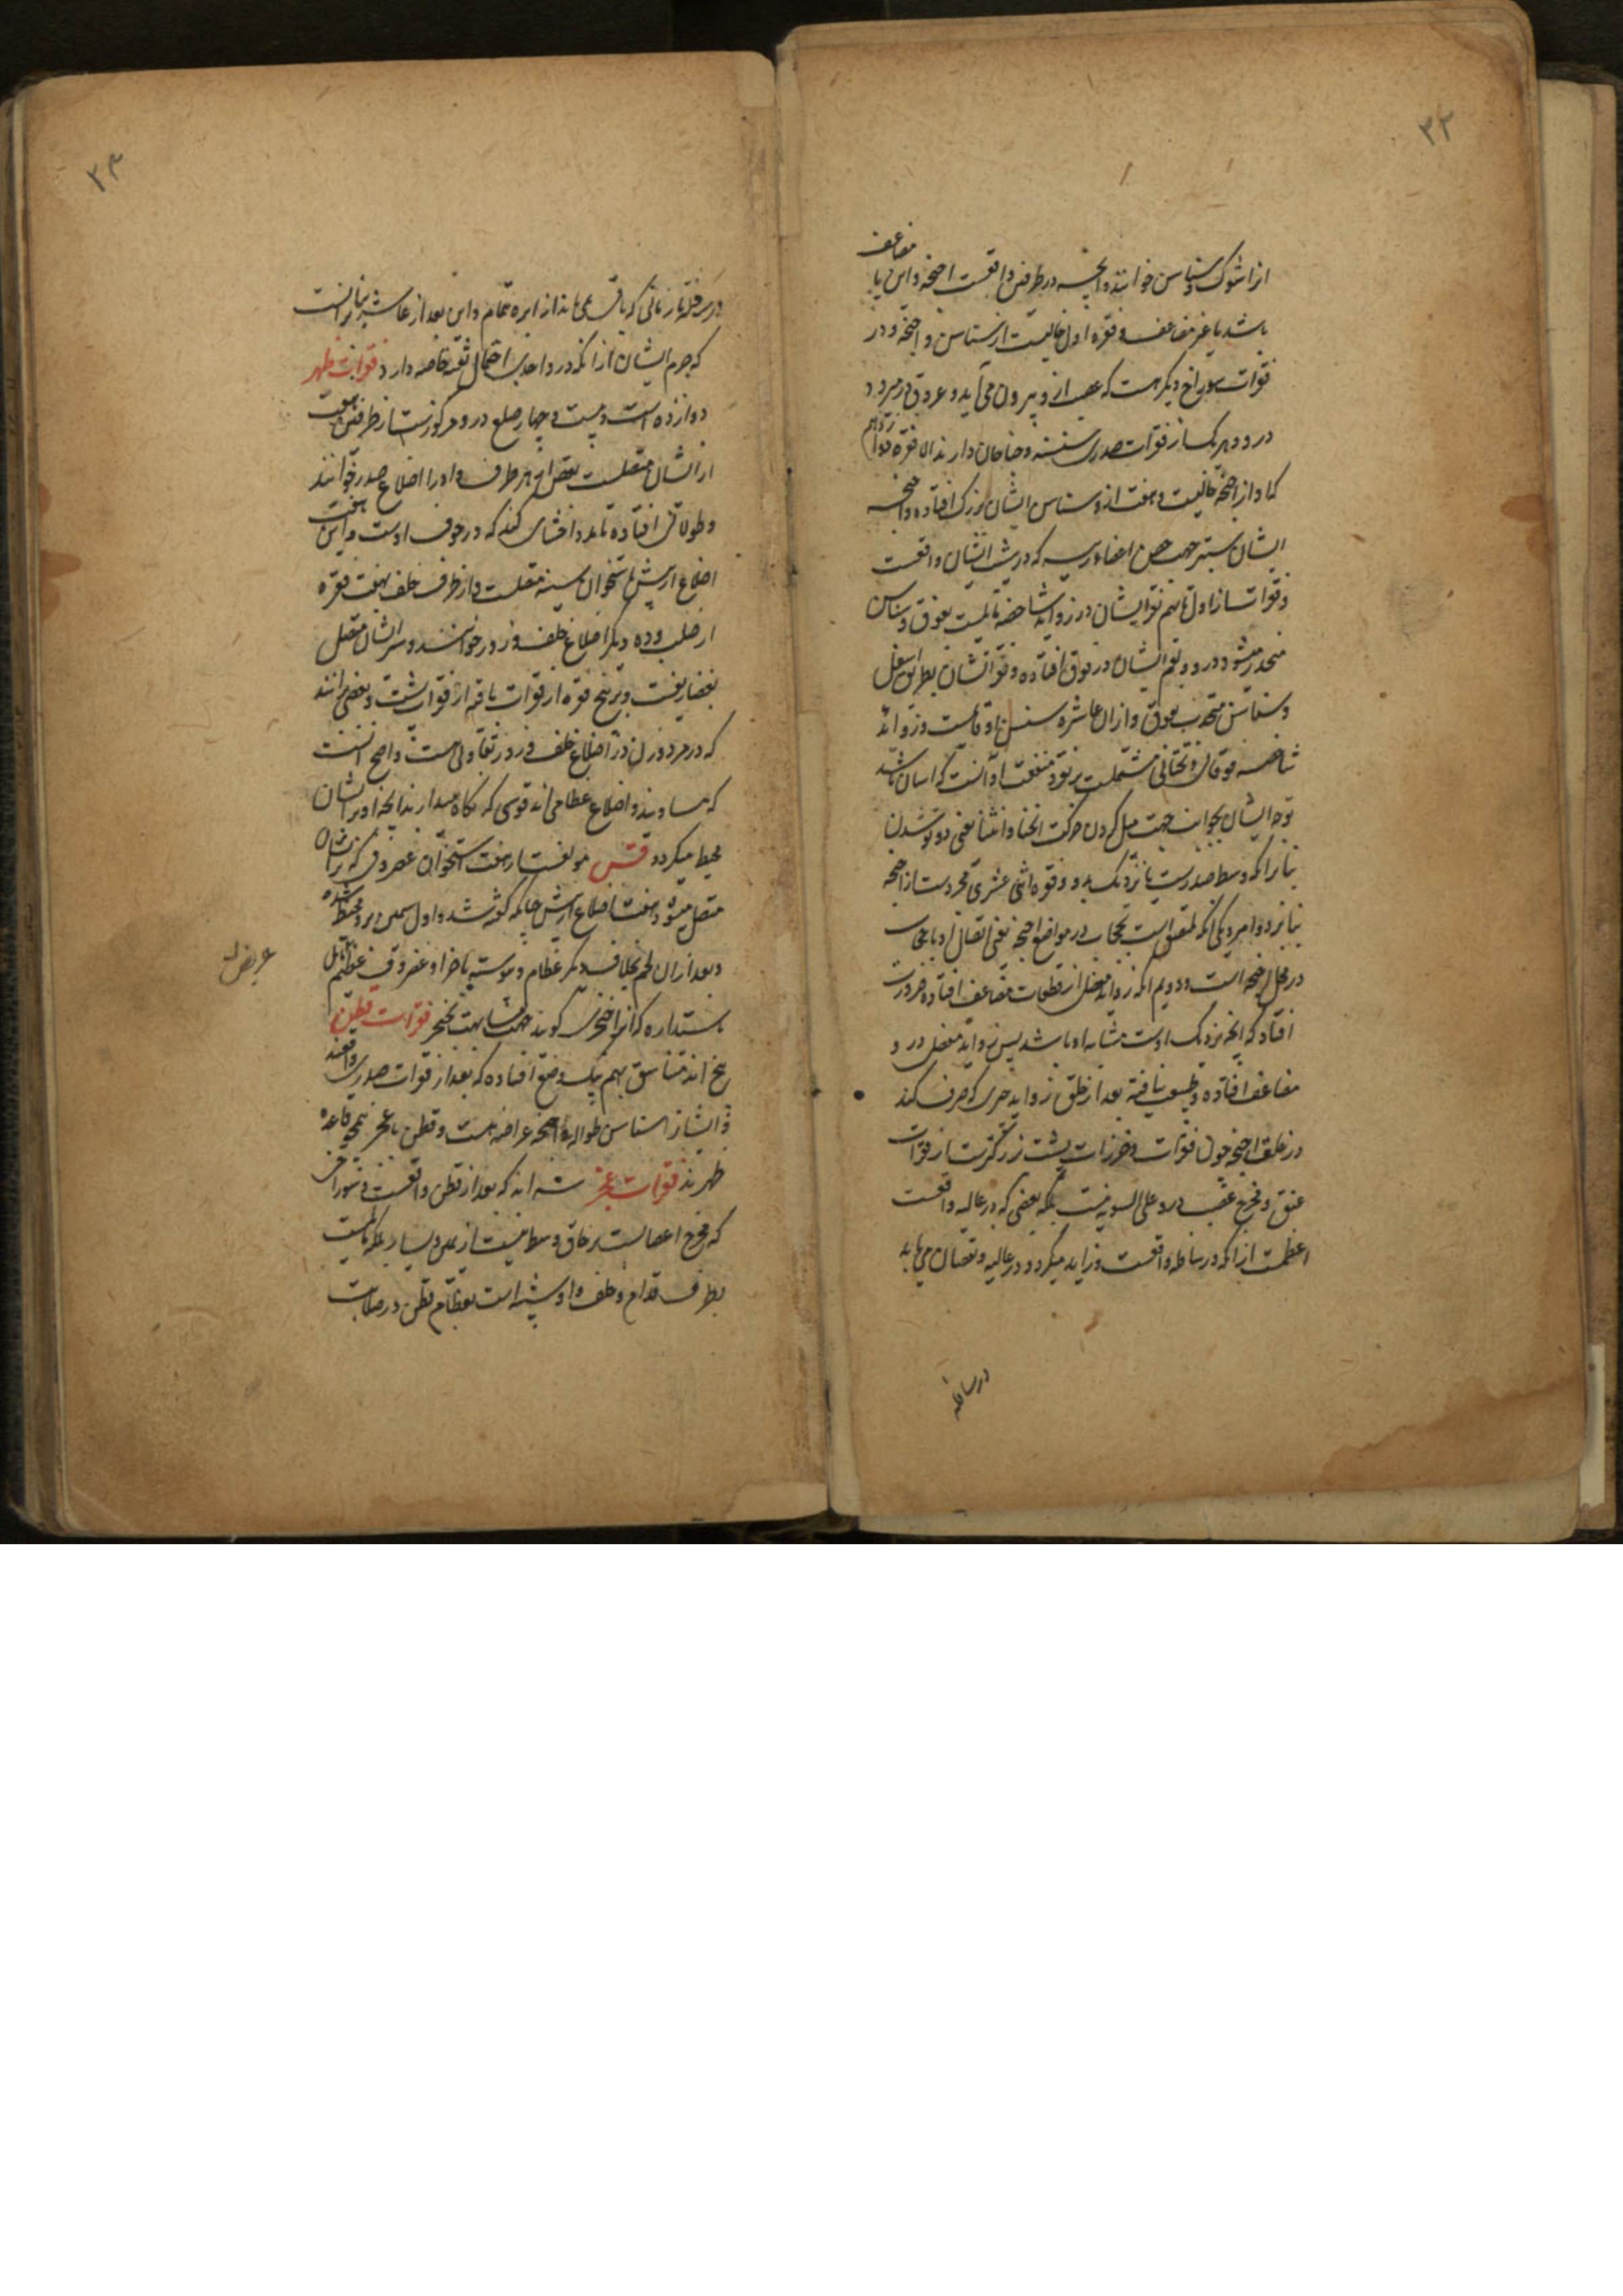 ۳۳
مضاعف
انرا شوک و سناسن خوانند و انچه در طرفین واقعست اجنحه و این یا
باشد یا غیر مضاعف و فقره اول خالیست از سناسن و اجنحه و در
فقرات سوراخ دیگر هست که عصب ازو بیرون می آید و عروق در میرود
درو و هریک از فقرات صدری سنسنه و جناحان دارند الا فقره دوازدهم
که او از اجنحه خالیست و هفت ازو سناسن ایشان بزرگ افتاده و اجنحه
ایشان سبتر جهت حصن اعضاء رئیسه که در پیش ایشان واقعست
و فقرات از اول تا نهم نتو ایشان در زواید شاخصه مایلست بفوق و سناسن
منحدر میشود درو و لقم ایشان در فوق افتاده و نتو ایشان بطریق اسفل
و سناسن محدب بفوق و ازان عاشره سنسن او قایمست و زواید
شاخصه فوقانی و تحتانی مشتملست بر نقره منفعت او آنست که اسان باشد
توجه ایشان بجوانب جهت میل کردن حرکت انحنا و انثنا یعنی دوتو شدن
بنابرانکه وسط صدرست یا نزدیک بدو و فقره اثنی عشری مجردست از اجنحه
بنابر دو امر یکی انکه ملتصق است حجاب در مواضع اجنحه یعنی اتصال او با حجاب
در محل اجنحه است و دویم انکه زواید مفصلی از قطعات مضاعف افتاده ضرورت
افتاد که انچه نزدیک اوست مشابه او باشد پس زواید مفصلی درو
مضاعف افتاده و طبیعت نیافته بعد از خلق زواید چیزی که صرف کند
در خلق اجنحه چون فقرات و خرزات پشت بزرگترست از فقرات
عنق و مخرج عصب درو علی السویه نیست بلکه بعضی که در عالیه واقعست
اعظمست ازانکه در سافله واقعست و زاید میگردد در عالیه و نقصان می یابد
در سافله
۳۴
در سافله تا زمانی که باقی می ماند از ابره تمام و این بعد از عاشره بنابر آنست
که جرم ایشان ازانکه در واحدی احتمال ثقبه خاصه دارد فقرات ظهر
دوازده است و بیست و چهار ضلع درو مرکوزست از طرفین هفت
از ایشان متصلست بقص از هر طرف و اورا اضلاع صدر خوانند
و طولانی افتاده تا مدد احشای کند که در جوف اوست و این هفت
اضلاع از پیش باستخوان سینه متصلست و از طرف خلف بهفت فقره
از صلب و ده دیگر اضلاع خلف و زور خوانند و سر ایشان متصل
بغضاریفست و بر پنج فقره از فقرات باقی از فقرات پشت و بعضی برانند
که در مرد و زن در اضلاع خلف و زور تفاوتی هست و اصح انست
که مساویند و اضلاع عظامی اند قوسی که نگاه میدارند انچه او بر ایشان
محیط میگردد قس مولفست از هفت استخوان غضروفی که بر ایشان
متصل میشود و هفت اضلاع از پیش چنانکه گفته شد و اول سمین برو محیط شده
و بعد ازان لحم بخلاف دیگر عظام و پیوسته باخر او غضروفی عظیم مایل
باستداره که انرا خنجری گویند جهت مشابهت بخنجر فقرات قطن
پنج اند متناسق بهم بیک وضع افتاده که بعد از فقرات صدری واقعند
و ایشانرا سناسن طواله و اجنحه عراضه هست و قطن با عجز همچو قاعده
ظهرند فقرات عجز سه اند که بعد از قطن واقعست و سوراخی
که مخرج اعصابست بر حاق وسط نیست از یمین و یسار بلکه مایلست
بطرف قدام و خلف و او شبیه است بعظام قطن در صلابت
عریض